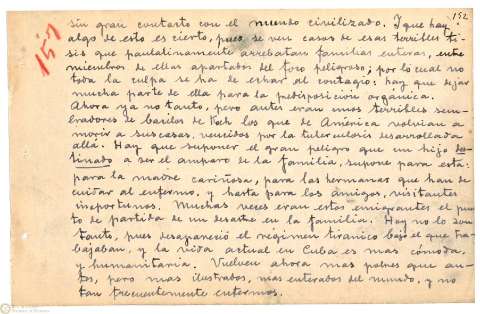 152
157
sin gran contacto con el mundo civilizado. Y que hay
algo de esto es cierto, pues se ven casos de esas terribles ti-
sis que paulatinamente arrebatan familias enteras, entre
miembros de ellas apartados del foco peligroso; por lo cual no
toda la culpa se ha de echar al contagio; hay que dejar
mucha parte de ella para la predisposición orgánica.
Ahora ya no tanto, pero antes eran unos terribles sem-
bradores de bacilos de Koch los que de América volvian a
morir a sus casas, vencidos por la tuberculosis desarrollada
allá. Hay que suponer el gran peligro que un hijo des-
tinado a ser el amparo de la familia, supone para esta:
para la madre cariñosa, para las hermanas que han de
cuidar al enfermo, y hasta para los amigos, visitantes
inoportunos. Muchas veces eran estos emigrantes el pun-
to de partida de un desastre en la familia. Hoy no lo son
tanto, pues desapareció el régimen tiranico bajo el que tra-
bajaban, y la vida actual en Cuba es mas cómoda
y humanitaria. Vuelven ahora mas pobres que an-
tes, pero mas ilustrados, mas enterados del mundo, y no
tan frecuentemente enfermos.